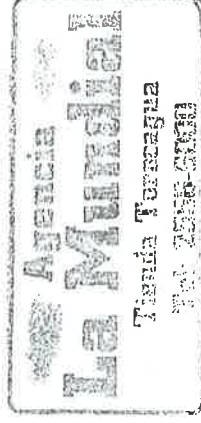 Agencia
La Mundial
Tienda Turcoagua
Tel: